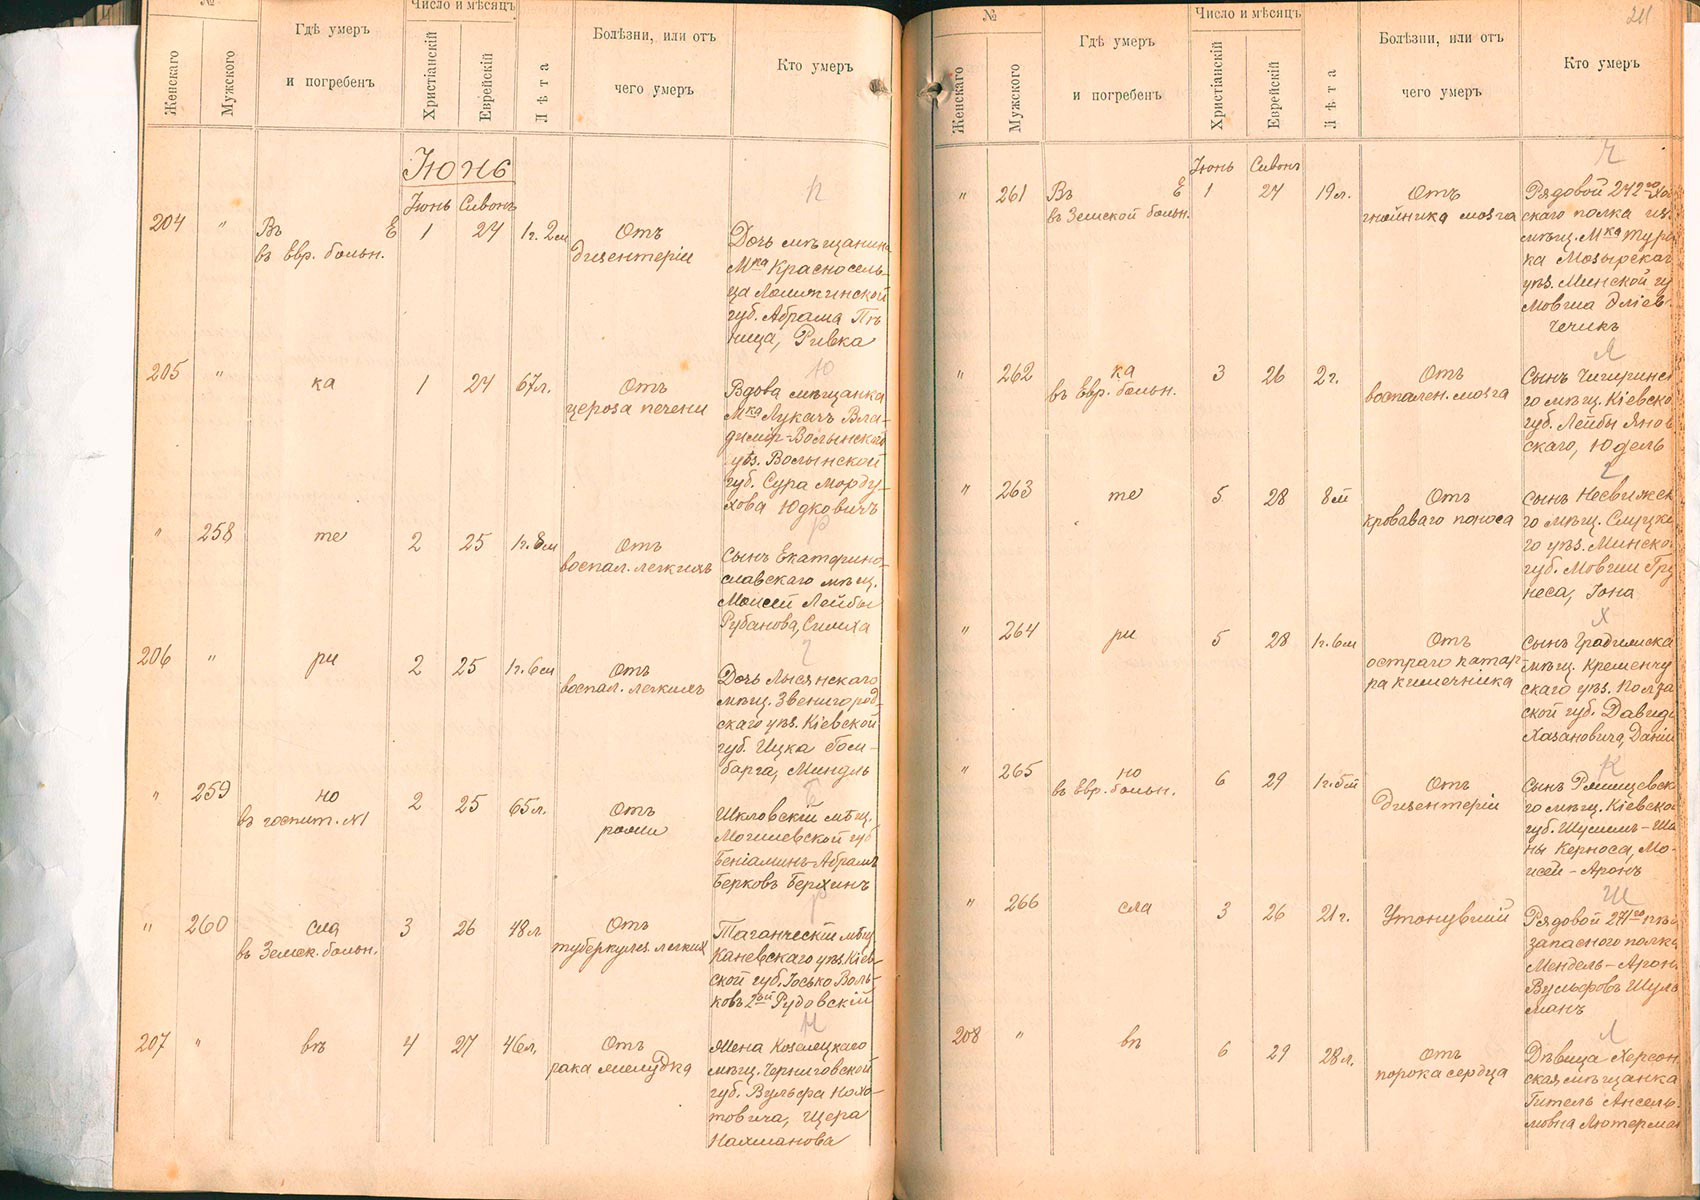 №
Женскаго
Мужского
Гдѣ умеръ
и погребенъ
Число и мѣсяцъ
Христіанскій
Еврейскій
Лѣта
Болѣзни, или отъ
чего умеръ
Кто умеръ
Іюнь
Іюнь Сивонъ
П
204 " Въ Е 1 24 1г. 2м Отъ
въ Евр. больн. дизентеріи
Дочь мѣщанина
Мка Красносель-
ца Ломжинской
губ. Абрама Пѣ
ница, Ривка
Ю
205 " ка 1 24 67л. Отъ
цероза печени
Вдова мѣщанка
Мка Лукачъ Вла-
димір-Волынскаго
уѣз. Волынской
губ. Сура Морду-
хова Юдковичъ
Р
" 258 те 2 25 1г. 8м Отъ
воспал. легкихъ
Сынъ Екатерино-
славскаго мѣщ.
Моисей Лейбы
Рубанова, Симха
Г
206 " ри 2 25 1г. 6м Отъ
воспал. легкихъ
Дочь Лысянскаго
мѣщ. Звенигород-
скаго уѣз. Кіевской
губ. Ицка Гом-
барга, Миндль
Б
" 259 но 2 25 65л. Отъ
въ госпит. №1 рожи
Шкловскій мѣщ.
Могилевской губ
Беніаминъ-Абрамъ
Берковъ Берхинъ
Р
" 260 сла 3 26 48л Отъ
въ Земск. больн. туберкулез. легкихъ
Таганческій мѣщ
Каневскаго уѣз. Кіев-
ской губ. Іосько Воль-
ковъ 2ой Рудовскій
Н
207 " въ 4 27 46л. Отъ
рака желудка
Жена Козелецкаго
мѣщ. Черниговской
губ. ВульфаКоло-
товича, Щера
Нахманова
211
№
Женскаго
Мужского
Гдѣ умеръ
и погребенъ
Число и мѣсяцъ
Христіанскій
Еврейскій
Лѣта
Болѣзни, или отъ
чего умеръ
Кто умеръ
Іюнь Сивонъ
Ч
" 261 Въ Е 1 24 19л. Отъ
въ Земской больн. гнойника мозга
Рядовой 242го
скаго полка изъ
мѣщ. Мка Туро
ка Мозырскаг
уѣз. Минской гу
Мовша Эліев
Чечикъ
Я
" 262 ка 3 26 2г. Отъ
въ Евр. больн. воспален. мозга
Сынъ Чигиринск
го мѣщ. Кіевско
губ. Лейбы Янов
скаго, Юдель
Г
" 263 те 5 28 8м Отъ
кроваваго поноса
Сынъ Несвижск
го мѣщ. Слуцка
го уѣз. Минско
губ. Мовши Гру
неса, Іона
Х
" 264 ри 5 28 1г. 6м Отъ
остраго катар
ра кишечника
Сынъ Градижска
мѣщ. Кременчу
скаго уѣз. Полта
ской губ. Давида
Хазановича, Даніи
К
" 265 но 6 29 1г. 5м Отъ
въ Евр. больн. дизентеріи
Сынъ Ржищевск
го мѣщ. Кіевско
губ. Шулимъ-Ша
ны Керноса, Мо-
исей-Аронъ
Ш
" 266 сла 3 26 21г. Утонувшій
Рядовой 274го пѣх
запаснаго полка
Мендель-Арон
Вульфовъ Шуль
манъ
Л
208 " въ 6 29 28л. Отъ
порока сердца
Дѣвица Херсон
ская мѣщанка
Гитель Ансель-
мовна Лютерман